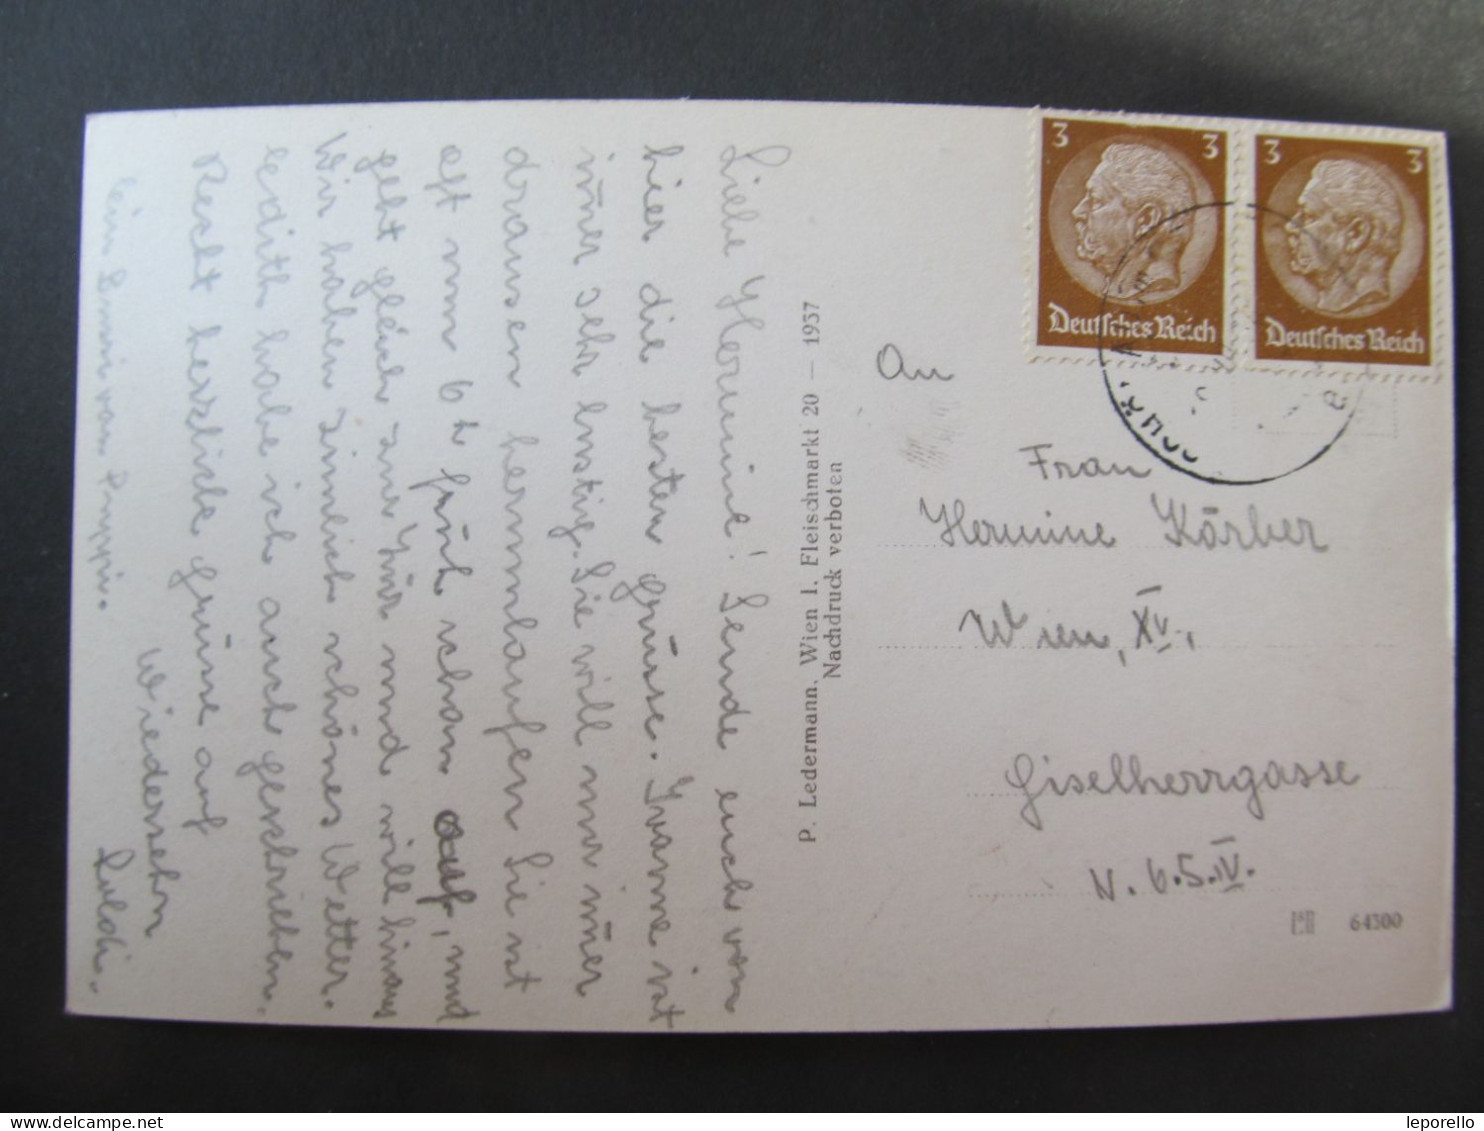 Liebe Hermine! Sende euch von
hier die besten Grüsse. Ivonne ist
im̄er sehr lustig. Sie will nur im̄er
draussen herumlaufen Sie ist
oft um 6h früh schon auf, und
geht gleich zur Tür und will hinaus
Wir haben zimlich schönes Wetter.
Edith habe ich auch geschrieben.
Recht herzliche Grüsse auf
Wiedersehn
Poldi.
ein Bussi von Puppi.
P. Ledermann, Wien I. Fleischmarkt 20 — 1937
Nachdruck verboten
3 3
Deutsches Reich
3 3
Deutsches Reich
An
Frau
Hermine Körber
Wien, XV.,
Giselherrgasse
N. 6. 5. IV.
64300
delcampe.net
leporello